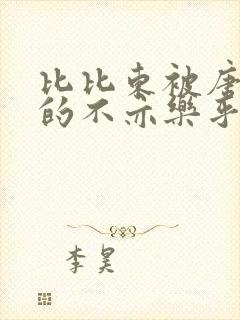 比比东被唐
的不亦乐乎
李昊